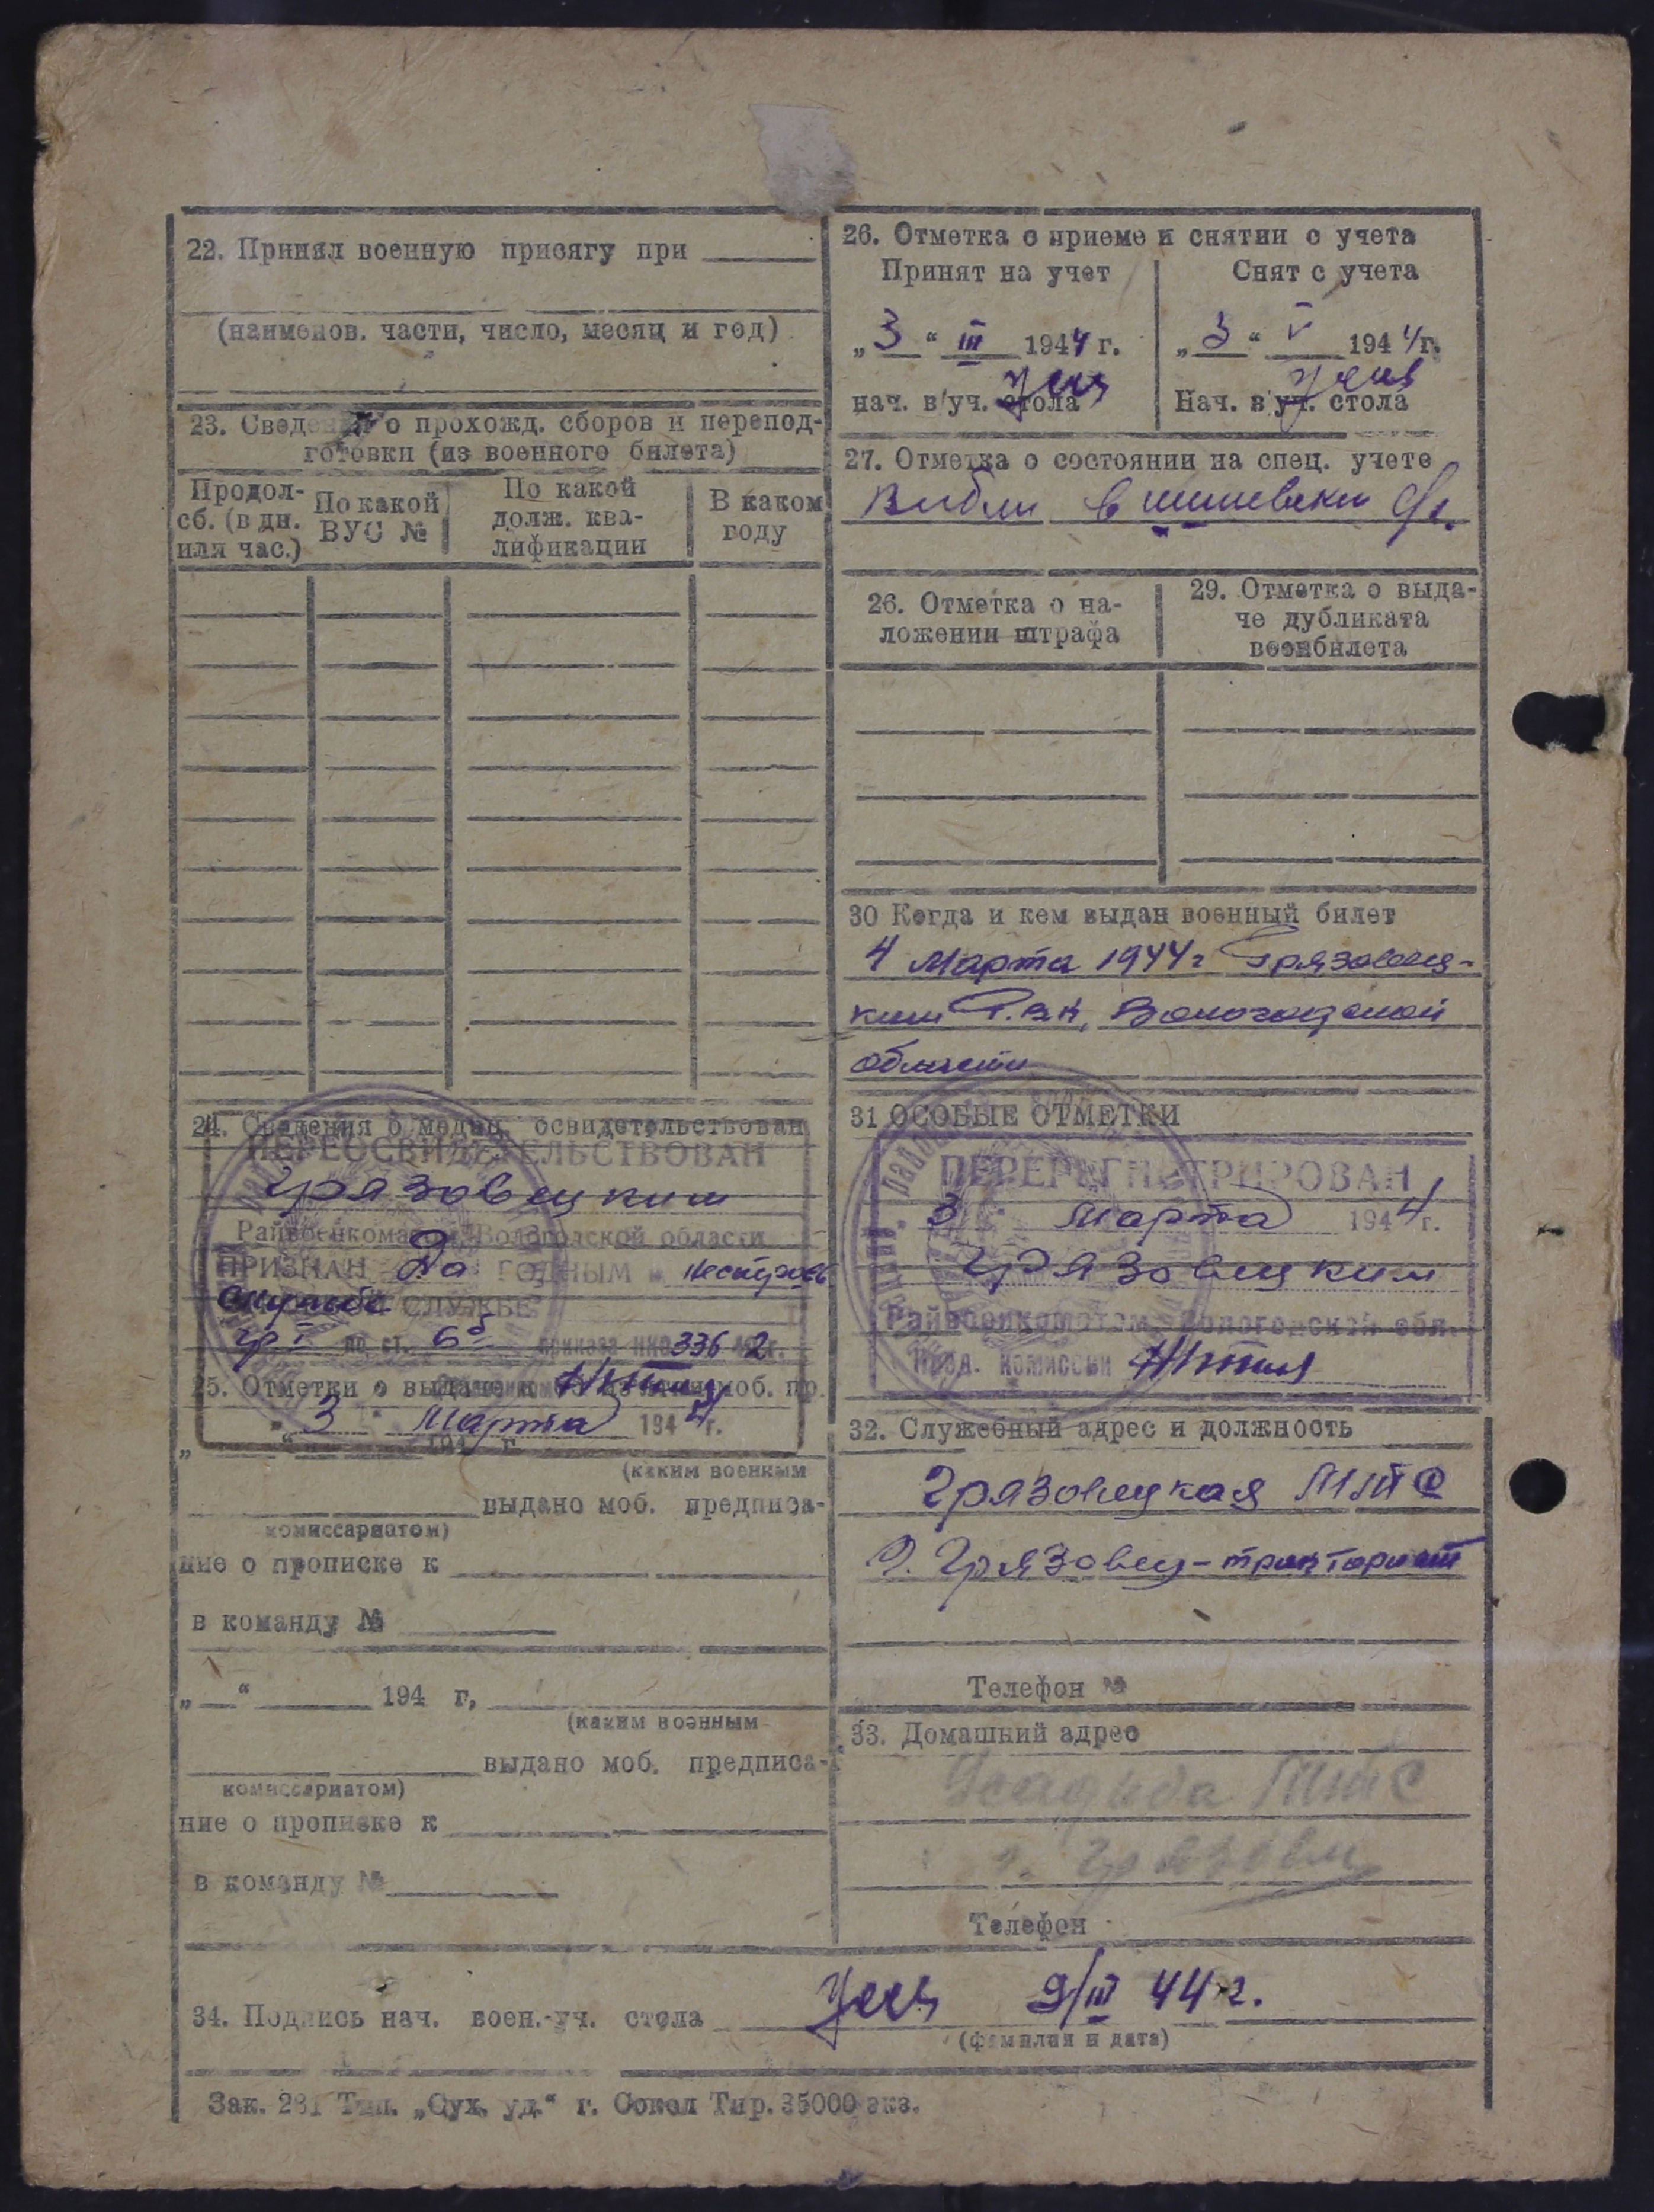 22. Принял военную присягу при
(наименов. части, число, месяц и год)
23. Сведения о прохожд. сборов и перепод-
готовки (из военного билета)
Продол- сб. (в дн. или час.)
По какой ВУС №
По какой долж. ква- лификации
В каком году
24. Сведения о медиц. освидетельствован
ПЕРЕОСВИДЕТЕЛЬСТВОВАН
Грязовецким
Райвоенкоматом Вологодской области
ПРИЗНАН да ГОДНЫМ к нестроев
службе СЛУЖБЕ
гр I по ст. 6б приказа НКО 336 42 г.
25. Отметки о выдаче и моб. пр.
"3" Марта 1944 г.
" " 194 г.
(каким военным
выдано моб. предписа-
комиссариатом)
ние о прописке к
в команду №
" " 194 г,
(каким военным
выдано моб. предписа-
комиссариатом)
ние о прописке к
в команду №
26. Отметка о приеме и снятии с учета
Принят на учет
Снят с учета
"3" III 1944 г.
"3" V 1944 г.
нач. в/уч. стола
Нач. в/уч. стола
27. Отметка о состоянии на спец. учете
в
26. Отметка о на-
ложении штрафа
29. Отметка о выда-
че дубликата
военбилета
30 Когда и кем выдан военный билет
4 Марта 1944 г Грязовец-
ким Р.В.К, Вологодской
области
31 ОСОБЫЕ ОТМЕТКИ
ПЕРЕРЕГИСТРИРОВАН
"3" Марта 1944 г.
Грязовецким
Райвоенкоматом Вологодской обл.
Пред. комиссии
32. Служебный адрес и должность
Грязовецкая МТС
г. Грязовец - тракторист
Телефон №
33. Домашний адрес
Усадьба МТС
г. Грязовец
Телефон
34. Подпись нач. воен.-уч. стола 9/III 44 г.
(фамилия и дата)
Зак. 281 Тип. „Сух. уд.“ г. Сокол Тир. 35000 экз.